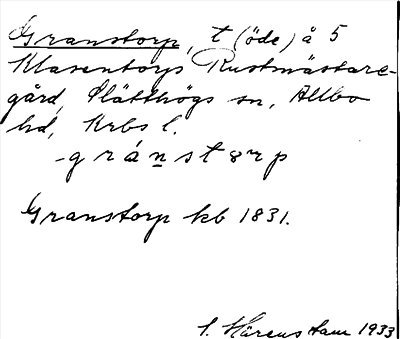 Granstorp, t (öde) å 5
Klasentorps Rustmästare-
gård, Slätthögs sn, Allbo
hd, Krbs l.
-gránstorp
Granstorp kb 1831.
S. Härenstam 1933